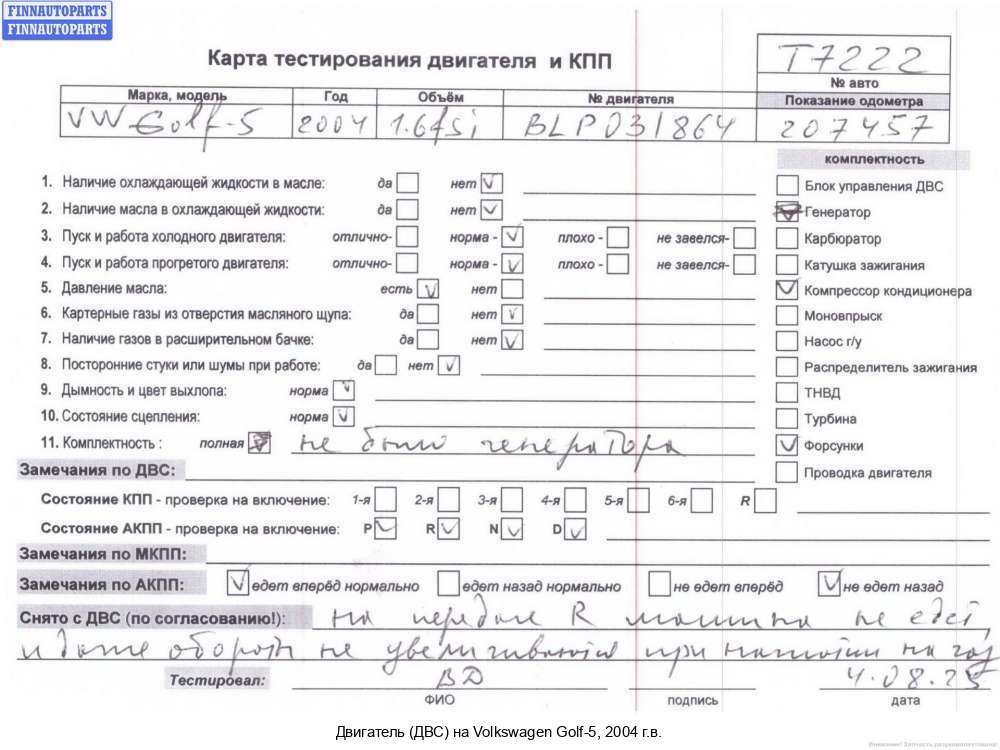 FINNAUTOPARTS
FINNAUTOPARTS
Карта тестирования двигателя и КПП
T7222
№ авто
Марка, модель Год Объём № двигателя Показание одометра
VW Golf-5 2004 1.6fsi BLP031864 207457
комплектность
1. Наличие охлаждающей жидкости в масле: да нет
Блок управления ДВС
2. Наличие масла в охлаждающей жидкости: да нет
Генератор
3. Пуск и работа холодного двигателя: отлично- норма - плохо - не завелся-
Карбюратор
4. Пуск и работа прогретого двигателя: отлично- норма - плохо - не завелся-
Катушка зажигания
5. Давление масла: есть нет
Компрессор кондиционера
6. Картерные газы из отверстия масляного щупа: да нет
Моновпрыск
7. Наличие газов в расширительном бачке: да нет
Насос г/у
8. Посторонние стуки или шумы при работе: да нет
Распределитель зажигания
9. Дымность и цвет выхлопа: норма
ТНВД
10. Состояние сцепления: норма
Турбина
11. Комплектность : полная не было генератора
Форсунки
Замечания по ДВС:
Проводка двигателя
Состояние КПП - проверка на включение: 1-я 2-я 3-я 4-я 5-я 6-я R
Состояние АКПП - проверка на включение: P R N D
Замечания по МКПП:
Замечания по АКПП: едет вперёд нормально едет назад нормально не едет вперёд не едет назад
Снято с ДВС (по согласованию!): на передаче R машина не едет,
и даже обороты не увеличиваются при нажатии на газ
Тестировал: ВД 4.08.25
ФИО подпись дата
Двигатель (ДВС) на Volkswagen Golf-5, 2004 г.в.
Внимание! Запчасть разукомплектована!